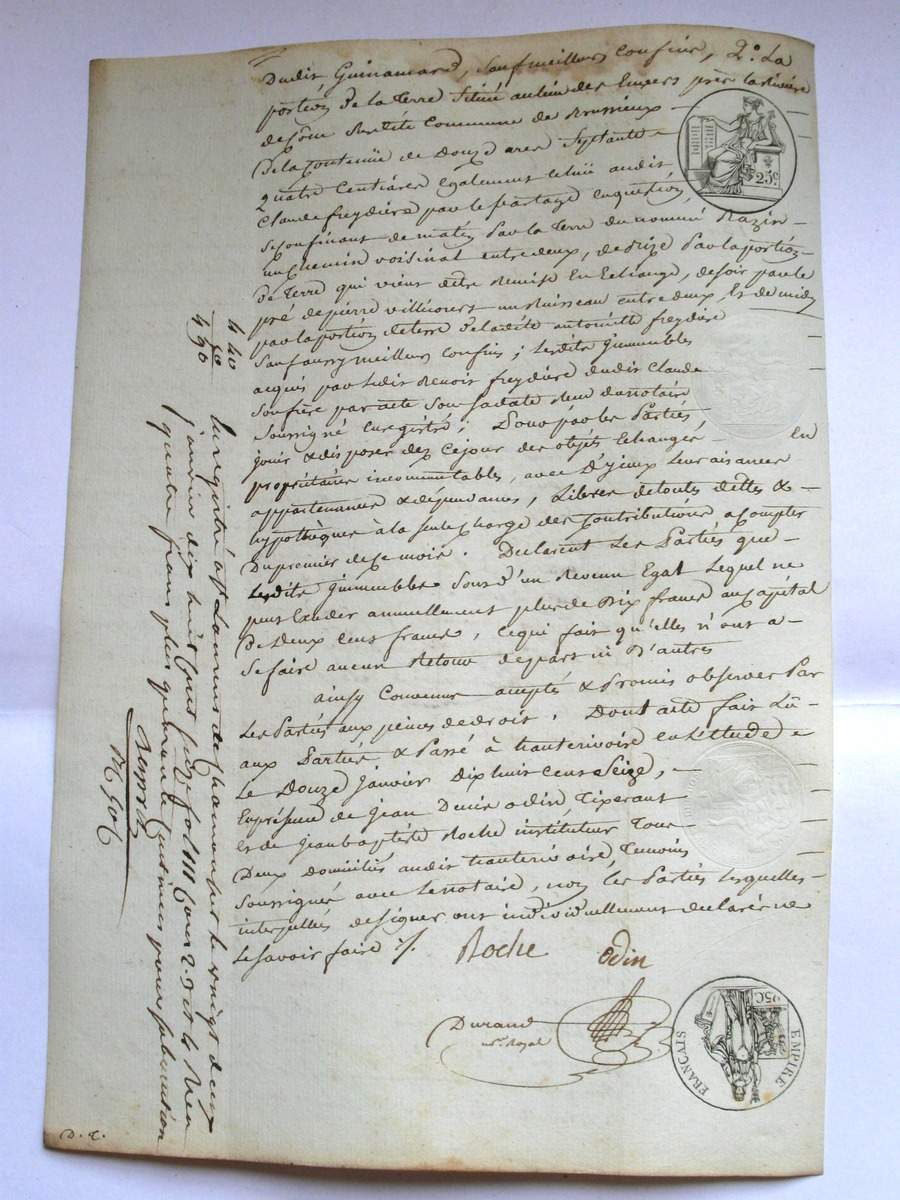 Dudit Guinamard, Sauf meilleurs Confins, 2.° La
portion de la Terre Située au lieu des Envers près la Rivière
de Cône Susdite Commune de Brussieux
De la Contenüe de Douze ares Septante
quatre Centiares également échüe audit
Claude freydière par le partage en question
Se Confinant de matin Par la Terre du nommé Razin
un Chemin voisinal entre deux, de Bize Par la portion
de Terre qui vient d'être Remise En Echange, de soir par le
pré de pierre villécourt un Ruisseau entre deux, Et de midy
par la portion de terre de ladite antoinette freydière
Sauf aussy meilleurs Confins; Lesdits Immeubles
acquis par Ledit Benoit freydière dudit Claude
Son frère par acte Sous Sa date Reçu du notaire
Soussigné Enregistré; Pour par les Parties
jouir & disposer dez Cejour des objets Echangés En
propriétaires incommutables, avec D'yceux Leurs aisances
appartenances & dépendances, Libres de toutes dettes &
hypothèques à la Seule Charge des Contributions a Compter
Du premier de Ce mois. Déclarent Les Parties que
Lesdits Immeubles Sont d'un Revenu Egal Lequel ne
peut Excéder annuellement plus de Dix francs au Capital
De Deux Cens francs, Ce qui fait qu'elles n'ont a
Se faire aucun Retour de part ni D'autres
ainsy Convenu accepté & Promis observer Par
Les Parties aux peines de droit. Dont acte fait Lû
aux Parties, & Passé à hauterivoire en L'étude
Le Douze Janvier Dix huit Cent Seize,
En présence de Jean Denis odin Tixerant
Et de Jean baptiste Roche instituteur Tous
Deux domiciliés audit hauterivoire, Temoins
Soussignés avec Le notaire, non les Parties Lesquelles
interpellées de signer ont individuellement déclaré ne
Le Savoir faire ./.
Roche odin
Durand
n.re Royal
25 c
EMPIRE
FRANÇAIS
25C
4 40
50
4 90
Enregistré à St Laurent de Chamousset le vingt deux
janvier dix huit cent seize fol 111 Cases 2. 3 et 4 Reçu
quatre francs plus quarante centimes pour subvention
D. C.